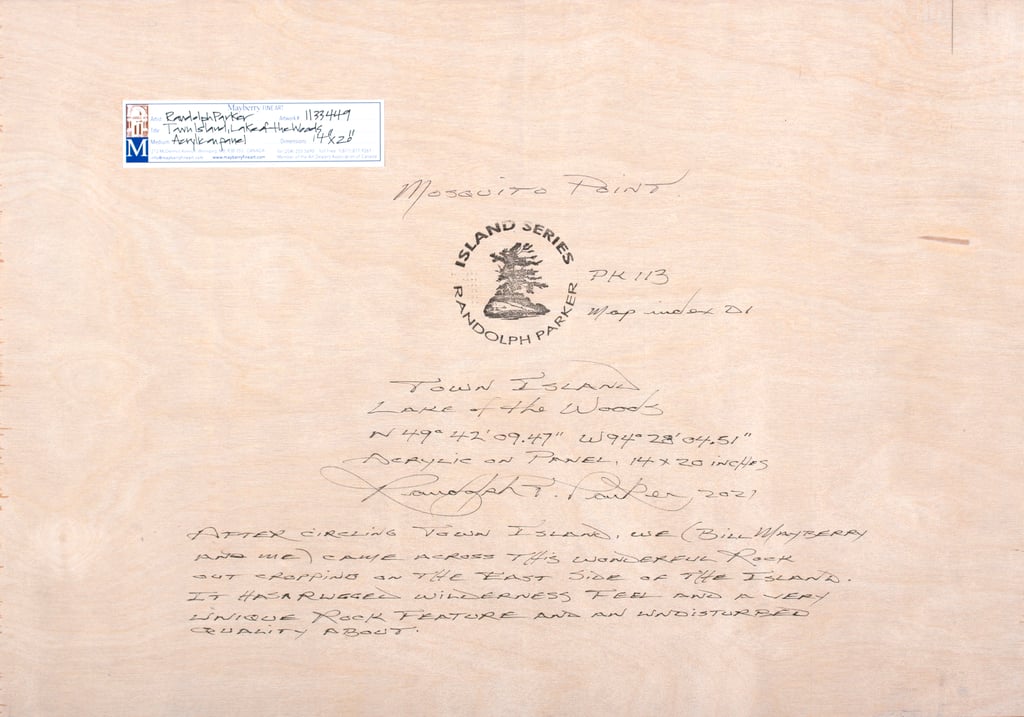 Mayberry FINE ART
Artist: Randolph Parker Artwork # 1133449
Title: Town Island, Lake of the Woods
Medium: Acrylic on panel Dimensions: 14" x 20"
M
info@mayberryfineart.com www.mayberryfineart.com
Mosquito Point
ISLAND SERIES
RANDOLPH PARKER
PK 113
Map index D1
Town Island
Lake of the Woods
N 49° 42' 09.47" W 94° 28' 04.51"
Acrylic on Panel, 14 x 20 inches
Randolph T. Parker, 2021
After circling Town Island, we (Bill Mayberry
and me) came across this wonderful Rock
out cropping on the East Side of the Island.
It has a Rugged wilderness Feel and a very
unique Rock Feature and an undisturbed
quality about.